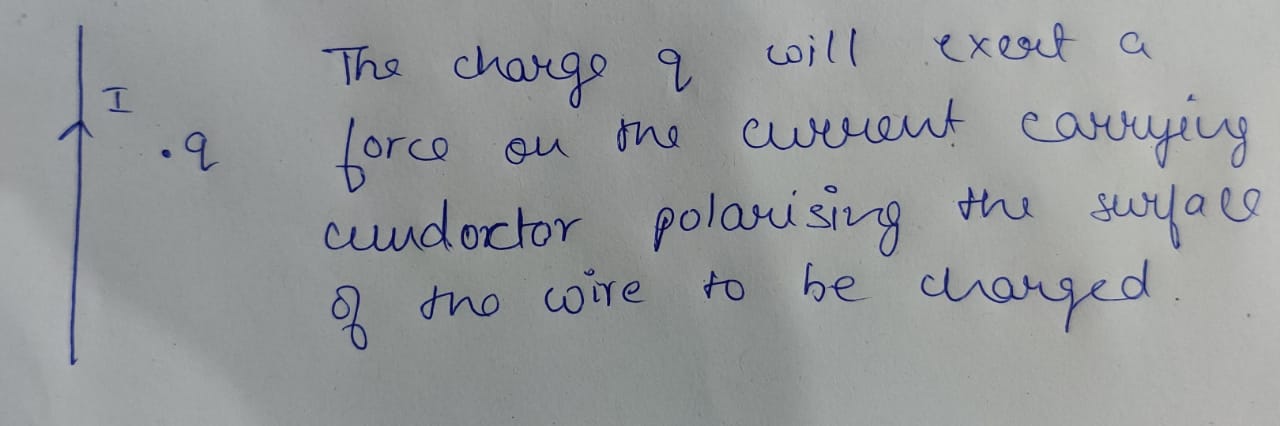 I
.q
The charge q will exert a
force on the current carrying
cundoctor polarising the surface
of the wire to be charged.